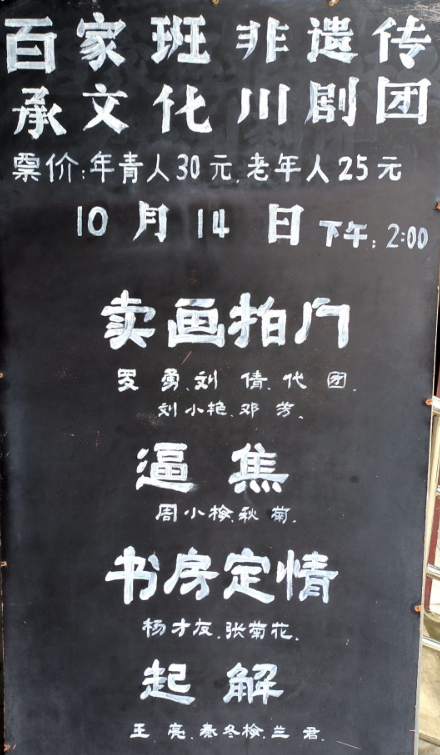 百家班非遗传
承文化川剧团
票价:年青人30元.老年人25元
10月14日下午:2:00
卖画拍门
罗勇.刘倩.代团.
刘小艳.邓芳.
逼焦
周小检.秋菊.
书房定情
杨才友.张菊花.
起解
王亮.秦冬检.兰君.